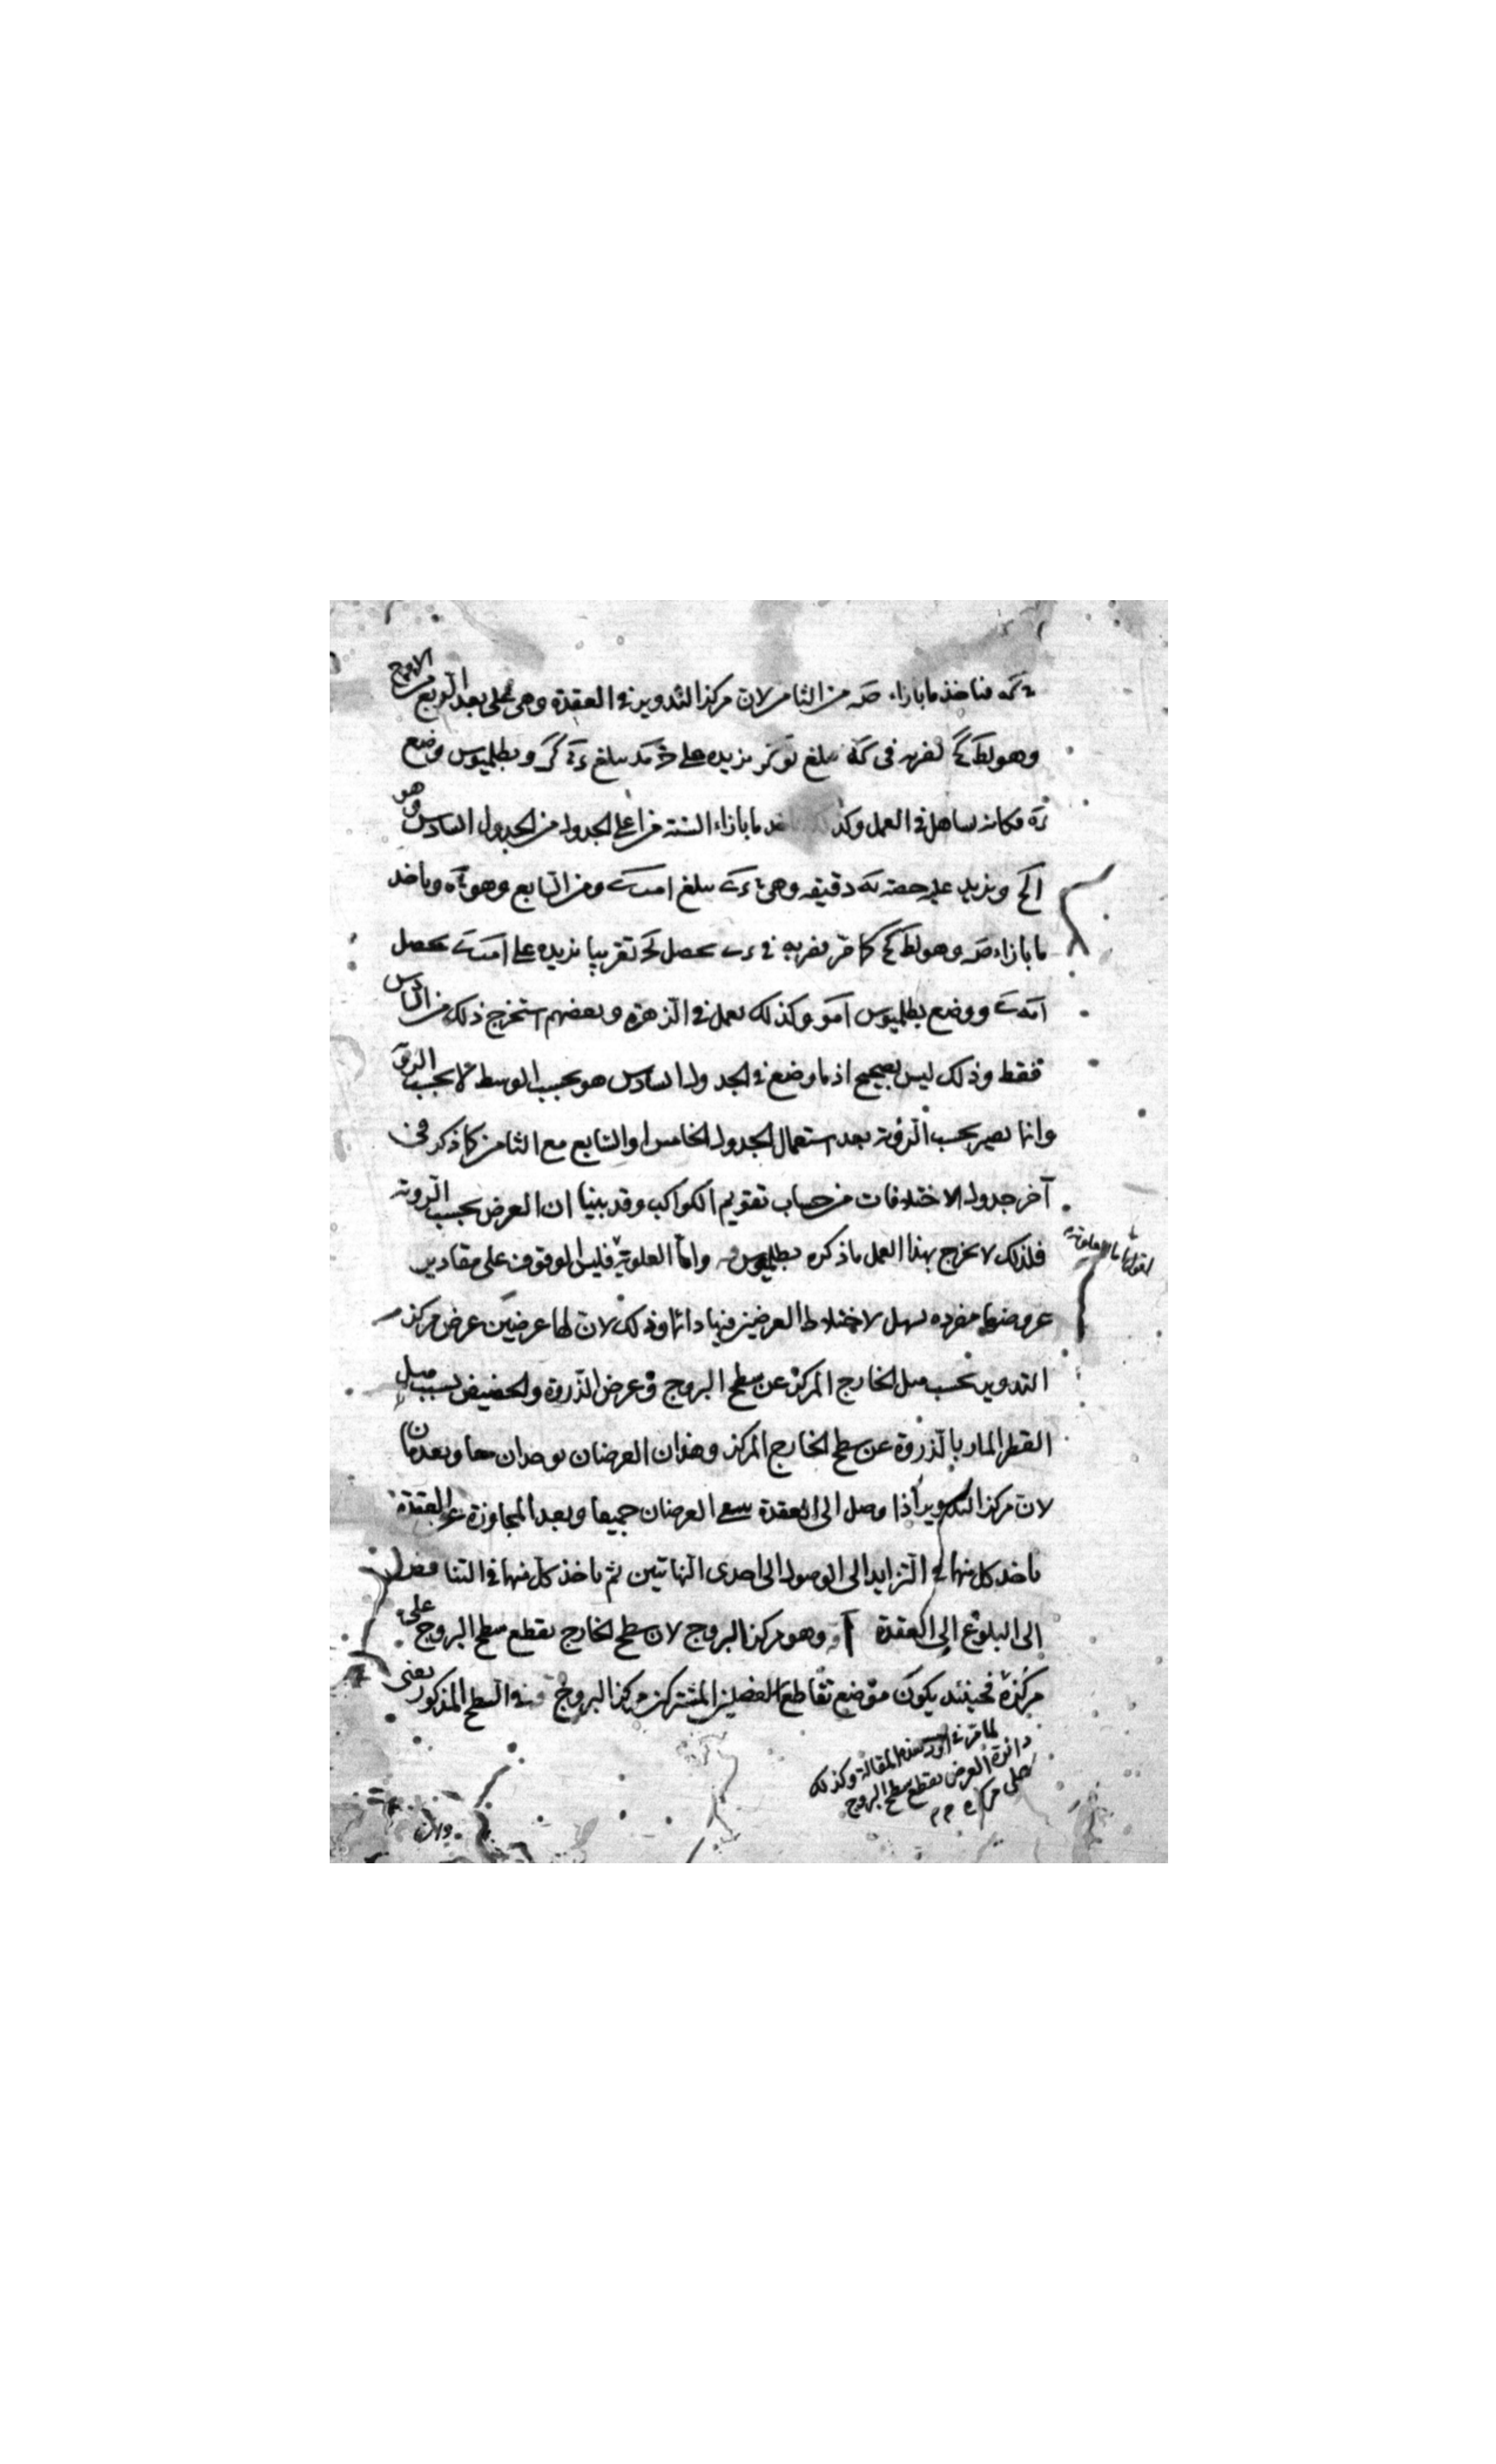 فناخذ ما بازاء صه من الثامن لان مركز التدوير فى العقدة وهى على بعد الربع من الاوج
وهو لط كح نضربه فى يبلغ نزيده على يبلغ وبطليموس وضع
فكانه تساهل فى العمل وكذلك ناخذ ما بازاء الستة من اعلى الجدول من الجدول السادس وهو
ا لح ونزيد عليه حصة دقيقه وهى يبلغ ومن السابع وهو وناخذ
ما بازاء صه وهو لط كح كما مر نضربه فى يحصل تقريبا نزيده على يحصل
ووضع بطليموس ا مو وكذلك نعمل فى الزهرة وبعضهم استخرج ذلك من السادس
فقط وذلك ليس بصحيح اذ ما وضع فى الجدول السادس هو بحسب الوسط لا بحسب الرؤية
وانما يصير بحسب الرؤية بعد استعمال الجدول الخامس او السابع مع الثامن كما ذكر فى
آخر جدول الاختلافات من حساب تقويم الكواكب وقد بينا ان العرض بحسب الروية
فلذلك لا يخرج بهذا العمل ما ذكره بطليموس واما العلوية فليس الوقوف على مقادير
عروضها مفردة بسهل لاختلاط العرضين فيها دائما وذلك لان لها عرضين عرض مركز
التدوير بحسب ميل الخارج المركز عن سطح البروج وعرض الذروة والحضيض بسبب ميل
القطر المار بالذروة عن سطح الخارج المركز وهذان العرضان يوجدان معا ويعدمان
لان مركز التدوير اذا وصل الى العقدة العرضان جميعا وبعد المجاوزة عن العقدة
ياخذ كل منهما فى التزايد الى الوصول الى احدى النهايتين ثم ياخذ كل منهما فى التناقص
الى البلوغ الى العقدة وهو مركز البروج لان سطح الخارج يقطع سطح البروج على
مركزه فحينئذ يكون موضع تقاطع الفصلين المشتركين مركز البروج فى السطح المذكور يعنى
لما مر فى اول هذه المقالة وكذلك
دائرة العرض يقطع سطح البروج
على مركزه